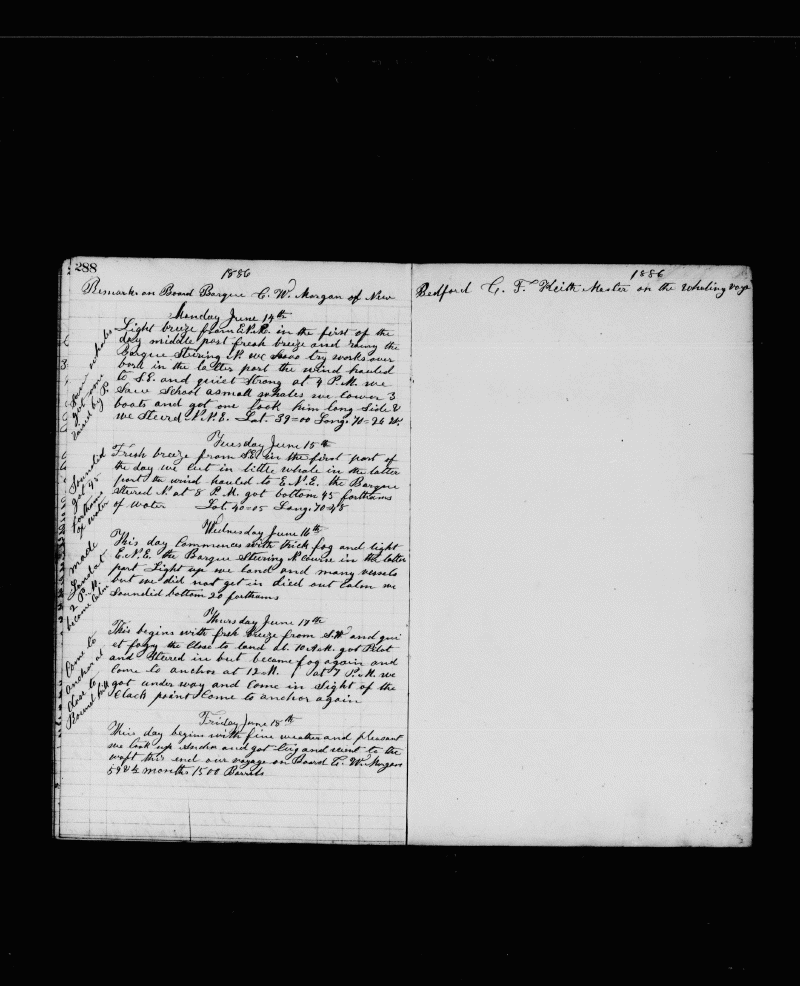 288
1886
Remarks on Board Barque C. W. Morgan of New
Monday June 14th
Light breize from E.N.E. in the first of the
day middle part fresh breize and rainy the
Barque Steering N. we hove try works over
bord in the latter part the wind hauled
to S.E. and quiet Strong at 4 P.M. we
Saw School a small whales we lower 3
boats and got one took him long Side &
we Steerd N.N.E. Lat. 39=00 Long. 70=26 W.
Saw whales
got one
raised by P.
Tuesday June 15th
Fresh breize from S.E. in the first part of
the day we Cut in little whale in the latter
port the wind hauled to E.N.E. the Barque
Stered N. at 8 P.M. got bottom 45 forthams
of water Lat. 40=05 Long. 70=48
Soundid
got 45
forthams
of water
Wednesday June 16th
This day Commences with thick fog and light
E.N.E. the Barque Steering N Course in the latter
part Light up we land and many vessels
but we did not get in died out Calm we
Soundid bottom 20 forthams
made
Land at
2 P.M.
become Calm
Thursday June 17th
This begins with fresh breize from S.W. and qui
et fogy the Close to land at 10 A.M. got Pilot
and Stered in but became fog again and
Come to anchor at 12 M. at 7 P.M. we
got under way and Come in Sight of the
Clark point Come to anchor again
Come to
anchor at
Close to
Round hill
Friday June 18th
This day begins with fine weather and pleasant
we took up anchor and got tug and went to the
woft this end our voyage on Board C. W. Morgan
months 1500 Barrels
1886
Bedford G. F. Keith Master on the Whaling voye